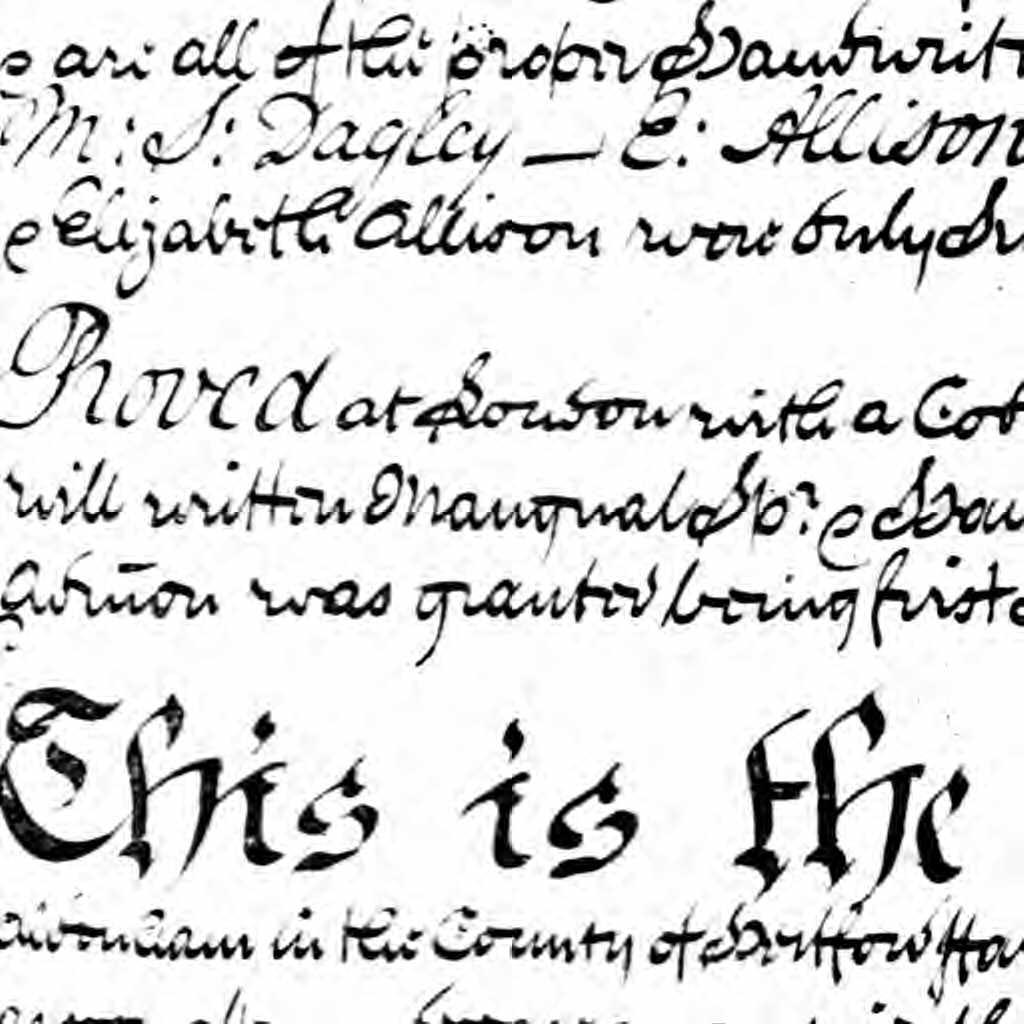 are all of the proper Handwrit
M: S: Dagley — E: Allison
& Elizabeth Allison were duly Sw
Proved at London with a Cod
will written Nangnal Sp.r & Han
Admon was granted being first
This is the
in the County of Hertford